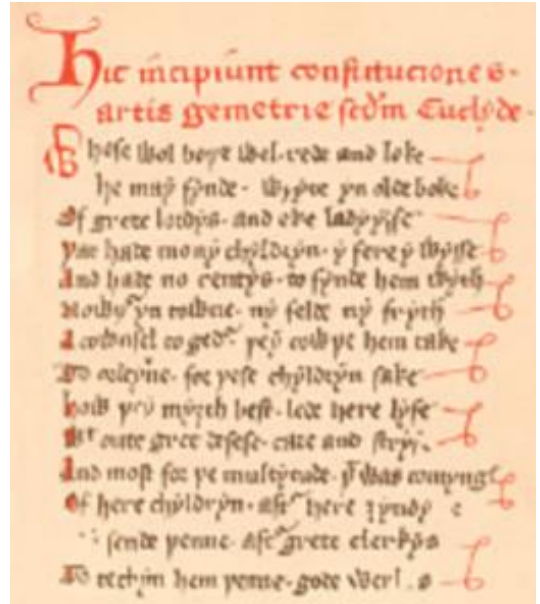 Hic incipiunt constituciones
artis gemetrie secdm Euclyde
Whose wol boþe wel rede and loke
he may fynde wryte yn olde boke
Of grete lordys and eke ladyysse
þat hade mony chyldryn y fere y wysse
And hade no rentys to fynde hem wyth
Nowþr yn towne ny felde ny fryth
A cownsel to gedr þey cowþe hem take
To ordeyne for þese chyldryn sake
how þey myȝth best lede here lyfe
oute gret desese care and
And most for þe multytude þt was comyng
Of here chyldryn aftr here
sende þenne aftr grete clerkys
To techyn hem þenne gode